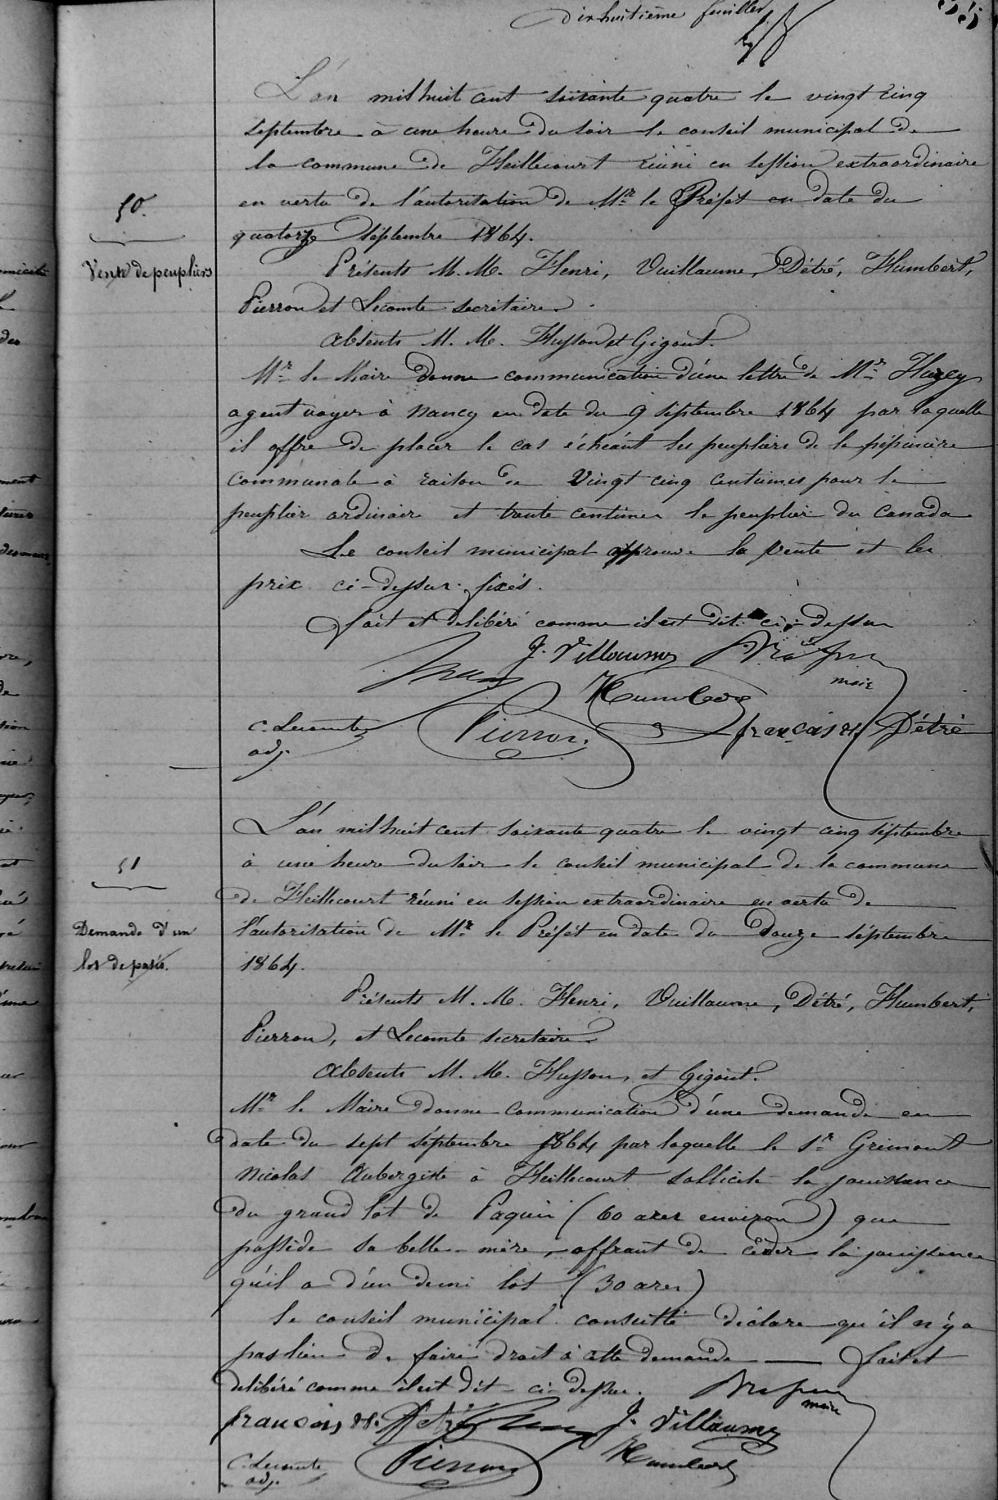 dixhuitième feuillet
L'an mil huit cent soixante quatre le vingt cinq
septembre à une heure du soir le conseil municipal de
la commune de Heillecourt réuni en session extraordinaire
en vertu de l'autorisation de Mr le Préfet en date du
quatorze septembre 1864.
50.
Vente de peupliers
Présents M. M. Henri, Vuillaume, Détré, Humbert,
Pierron et Lecomte secrétaire.
Absents M. M. Husson et Gigout.
Mr le Maire donne communication d'une lettre de Mr
agent voyer à Nancy en date du 9 septembre 1864 par laquelle
il offre de placer le cas échéant les peupliers de la pépinière
communale à raison de Vingt cinq centimes pour le
peuplier ordinaire et trente centimes le peuplier du Canada
Le conseil municipal approuve la vente et les
prix ci-dessus fixés.
fait et délibéré comme il est dit ci-dessus
J. Villaume
maire
Humbert
C. Lecomte
adj.
Pierron
françois Détré
L'an mil huit cent soixante quatre le vingt cinq septembre
à une heure du soir le conseil municipal de la commune
51
de Heillecourt réuni en session extraordinaire en vertu de
Demande d'un
lot de patis.
l'autorisation de Mr le Préfet en date du douze septembre
1864.
Présents M. M. Henri, Vuillaume, Détré, Humbert,
Pierron, et Lecomte secrétaire.
Absents M. M. Husson, et Gigout.
Mr le Maire donne communication d'une demande en
date du sept septembre 1864 par laquelle le Sr Grimont
Nicolas Aubergiste à Heillecourt sollicite la jouissance
du grand lot de Paquis (60 ares environ) que
possède sa belle-mère, offrant de céder la jouissance
qu'il a d'un demi lot (30 ares)
Le conseil municipal consulté déclare qu'il n'y a
pas lieu de faire droit à cette demande — fait et
délibéré comme il est dit ci-dessus.
maire
françois Détré
J. Villaume
C. Lecomte
adj.
Pierron
Humbert